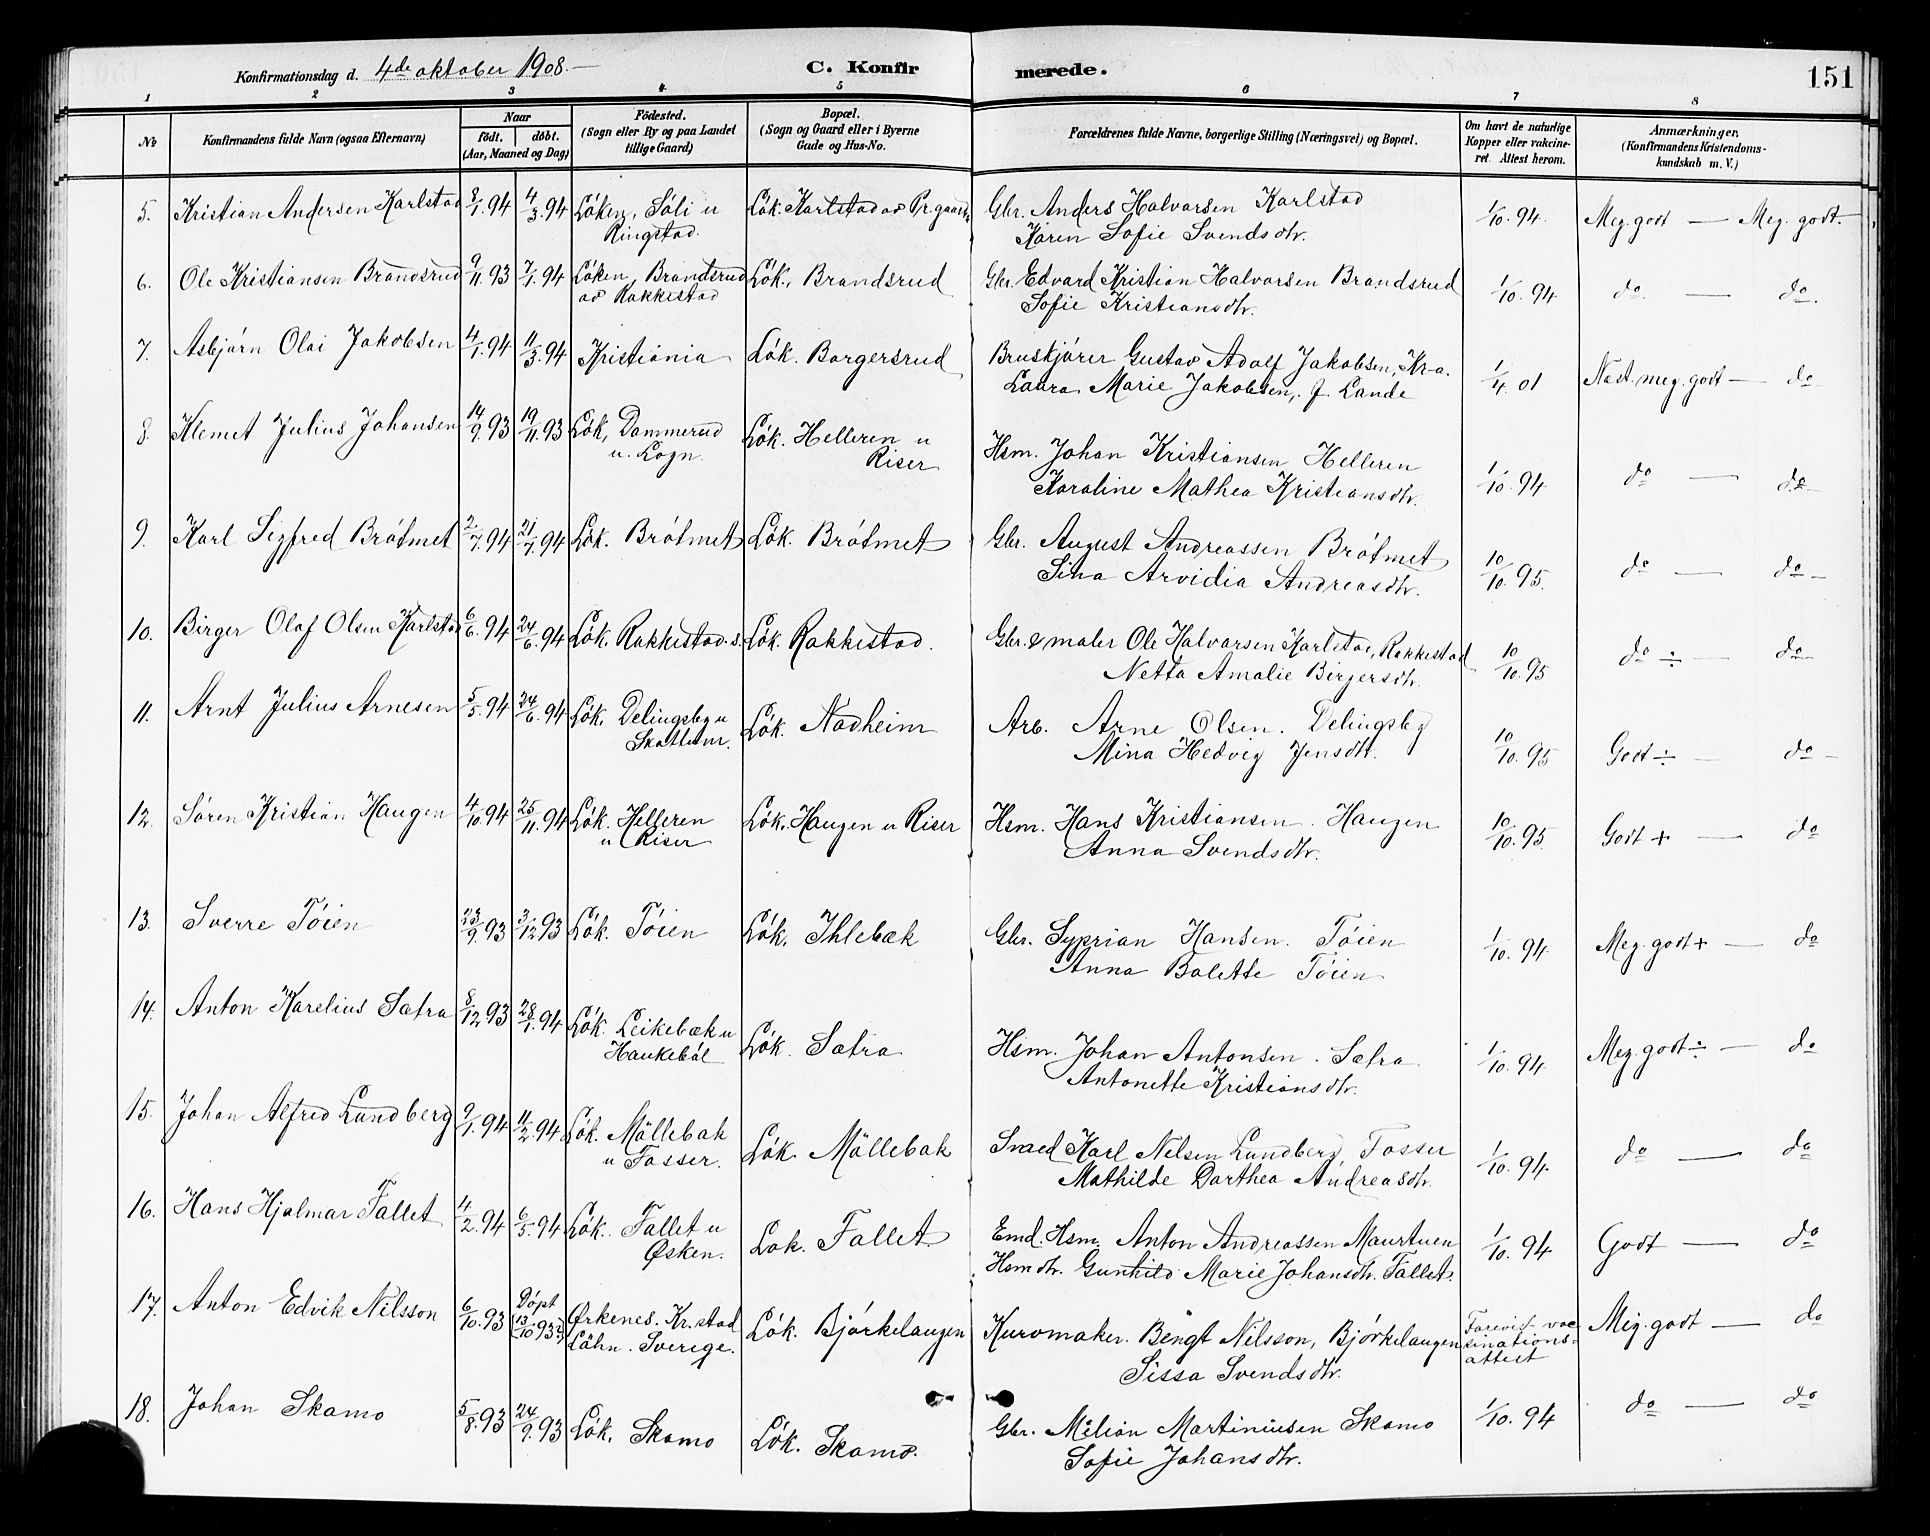 Konfirmationsdag d. 4de oktober 1908.— C. Konfirmerede. 151
1 2 3 4 5 6 7 8
No Konfirmandens fulde Navn (ogsaa Efternavn) Naar født. døbt. (Aar, Maaned og Dag) Fødested. (Sogn eller By og paa Landet tillige Gaard) Bopæl. (Sogn og Gaard eller i Byerne Gade og Hus-No. Forældrenes fulde Navne, borgerlige Stilling (Næringsvei) og Bopæl. Om havt de naturlige Kopper eller vakcineret. Attest herom. Anmærkninger. (Konfirmandens Kristendomskundskab m. V.)
5. Kristian Andersen Karlstad 8/1.94 4/3.94 Løken, Søli u Løk. Karlstad av Pr.gaard Gbr. Anders Halvorsen Karlstad 1/10.94. Meg. godt — Meg. godt.
Ringstad. Karen Sofie Svendsdtr.
6. Ole Kristiansen Brandsrud 9/11.93 7/1.94 Løken, Brandsrud Løk., Brandsrud Gbr. Edvard Kristian Halvorsen Brandsrud 1/10.94 do. — do.
av Rakkestad Sofie Kristiansdtr.
7. Asbjørn Olai Jakobsen 4/1.94 11/3.94 Kristiania Løk. Borgersrud Bruskjører Gustav Adolf Jakobsen, Kr-a. 1/4.01 Næst. meg. godt — do
Laura Marie Jakobsen, f. Lande
8. Klemet Julius Johansen 14/9.93 19/11.93 Løk, Dammerud Løk. Helleren u Hsm. Johan Kristiansen Helleren 1/10.94 do — do
u. Logn. Riser Karoline Mathea Kristiansdtr.
9. Karl Sigfred Bråtmet 2/7.94 21/7.94 Løk. Bråtmet Løk. Bråtmet Gbr. August Andreassen Bråtmet 10/10.95. do — do
Sina Arvidia Andreasdtr.
10. Birger Olaf Olsen Karlstad 6/6.94 24/6.94 Løk. Rakkestad.s. Løk. Rakkestad. Gbr. & maler Ole Halvorsen Karlstad, Rakkestad 10/10.95 do ÷ — do
Netta Amalie Birgersdtr.
11. Arnt Julius Arnesen 5/5.94 24/6.94 Løk. Delingsby u Løk. Nadheim Arb. Arne Olsen. Delingsby 10/10.95 Godt ÷ — do
Skattum. Mina Hedvig Jensdtr.
12. Søren Kristian Haugen 4/10.94 25/11.94 Løk. Helleren Løk. Haugen u Riser Hsm. Hans Kristiansen. Haugen 10/10.95. Godt + — do
u Riser Anna Svendsdtr.
13. Sverre Tøien 23/9.93 3/12.93 Løk. Tøien Løk. Ihlebæk Gbr. Syprian Hansen. Tøien 1/10.94 Meg. godt + — do
Anna Bolette Tøien
14. Anton Karelius Sætra 8/12.93 28/1.94 Løk. Leikebæk u Løk. Sætra Hsm. Johan Antonsen. Sætra 1/10.94 Meg. godt ÷ — do
Haukebøl Antonette Kristiansdtr.
15. Johan Alfred Lundberg 9/1.94 11/2.94 Løk. Møllebak Løk. Møllebak Smed Karl Nelsen Lundberg, Fosser 1/10.94 do — do
u Fosser. Mathilde Dorthea Andreasdtr.
16. Hans Hjalmar Fallet 4/2.94 6/5.94 Løk. Fallet u Løk. Fallet. Emd. Hsm. Anton Andreassen Maurtuen 1/10.94 Godt — do
Øsken. Hsmdtr. Gunhild Marie Johansdtr. Fallet.
17. Anton Edvik Nilsson 6/10.93 Døpt (13/10 93?) Ørkenes. Kr.stad Løk. Bjørkelangen Kurvmaker. Bengt Nilsson, Bjørkelangen Forevist vaccinations=attest Meg. godt — do
Löhn. Sverige. Sissa Svendsdtr.
18. Johan Skamo 5/8.93 24/9.93 Løk. Skamo Løk. Skamo. Gbr. Milian Martiniusen Skamo 1/10.94 do — do
Sofie Johansdtr.